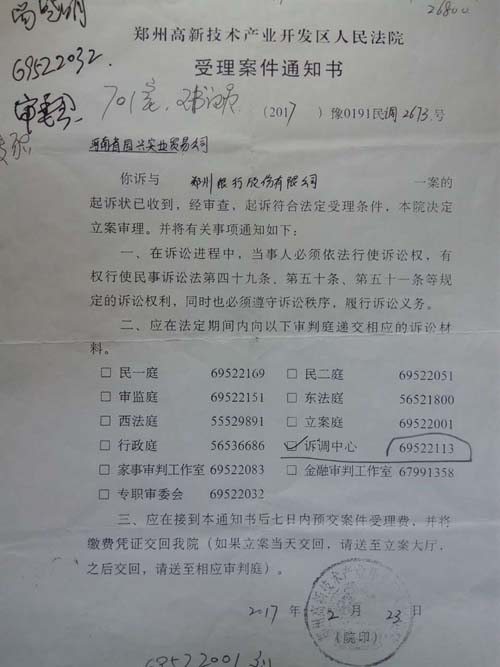 26800
郑州高新技术产业开发区人民法院
受理案件通知书
69522032
701室
(2017)豫0191民调2673号
河南省国兴实业贸易公司
你诉与 郑州银行股份有限公司 一案的
起诉状已收到，经审查，起诉符合法定受理条件，本院决定
立案审理。并将有关事项通知如下：
一、在诉讼进程中，当事人必须依法行使诉讼权，有
权行使民事诉讼法第四十九条、第五十条、第五十一条等规
定的诉讼权利，同时也必须遵守诉讼秩序，履行诉讼义务。
二、应在法定期间内向以下审判庭递交相应的诉讼材
料。
□ 民一庭 69522169 □ 民二庭 69522051
□ 审监庭 69522151 □ 东法庭 56521800
□ 西法庭 55529891 □ 立案庭 69522001
□ 行政庭 56536686 ☑ 诉调中心 69522113
□ 家事审判工作室 69522083 □ 金融审判工作室 67991358
□ 专职审委会 69522032
三、应在接到本通知书后七日内预交案件受理费，并将
缴费凭证交回我院（如果立案当天交回，请送至立案大厅，
之后交回，请送至相应审判庭）。
2017 年 2 月 23 日
（院印）
69522001